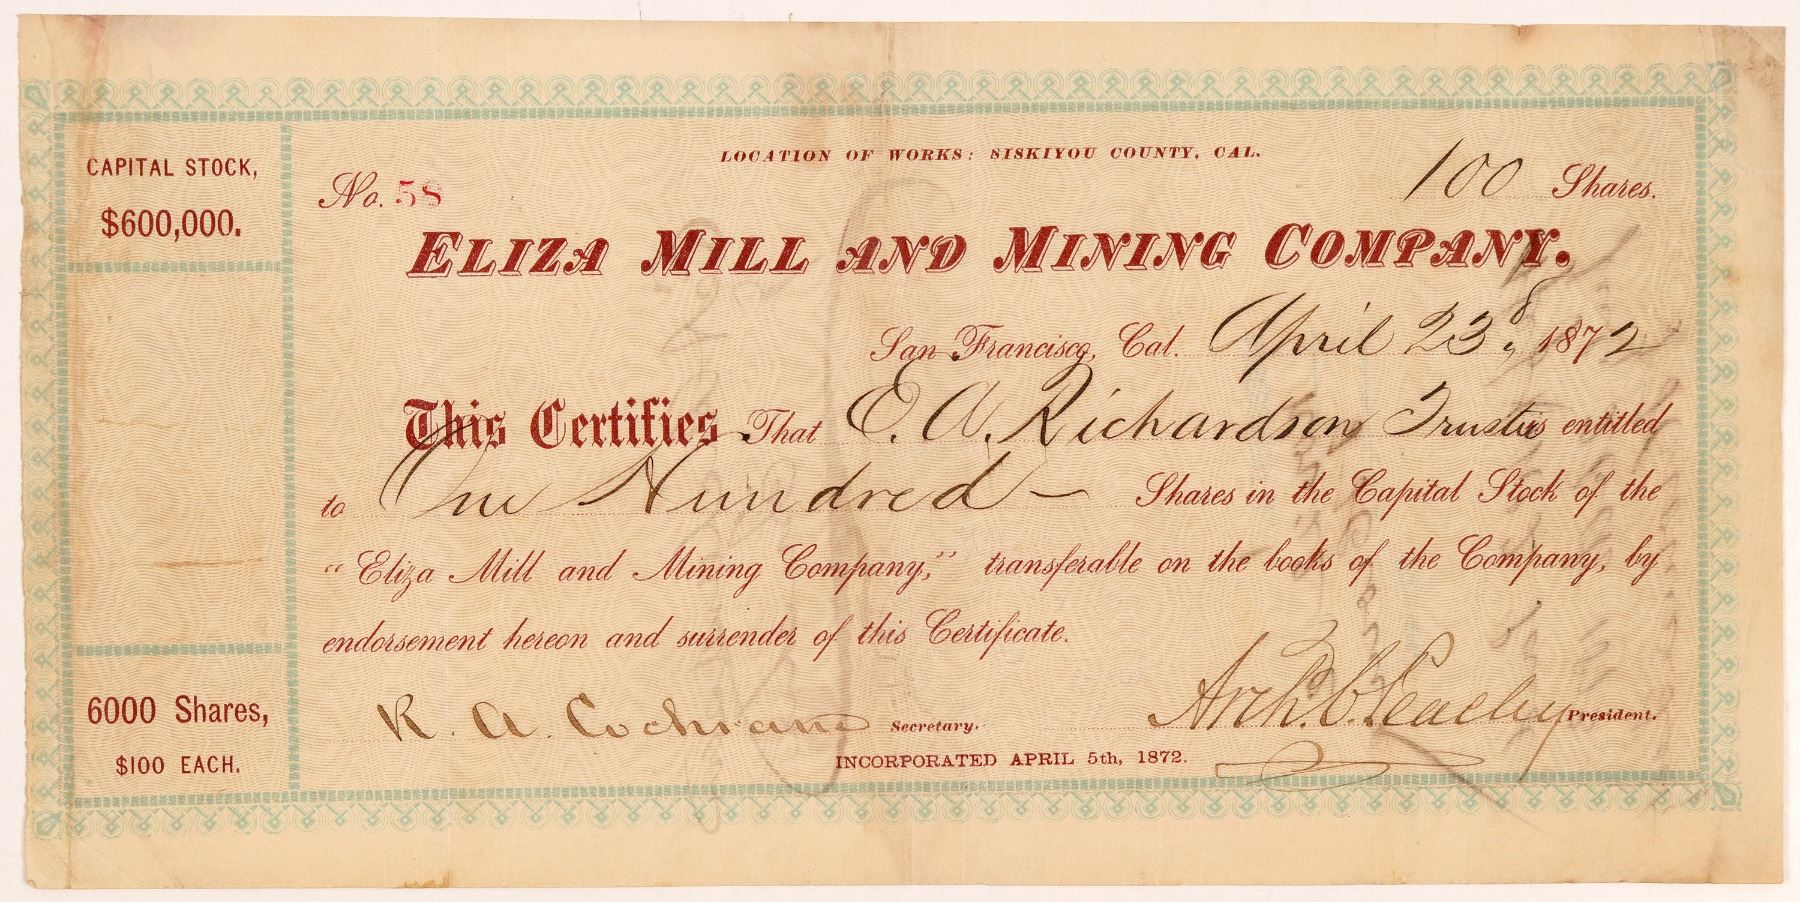 LOCATION OF WORKS: SISKIYOU COUNTY, CAL.
CAPITAL STOCK,
$600,000.
No. 58
100 Shares.
ELIZA MILL AND MINING COMPANY.
San Francisco, Cal. April 23d, 1872
This Certifies That E. A. Richardson Trustee is entitled
to One Hundred — Shares in the Capital Stock of the
"Eliza Mill and Mining Company," transferable on the books of the Company, by
endorsement hereon and surrender of this Certificate.
6000 Shares,
$100 EACH.
R. A. Cochrane Secretary.
Archd. C. Peachy President.
INCORPORATED APRIL 5th, 1872.